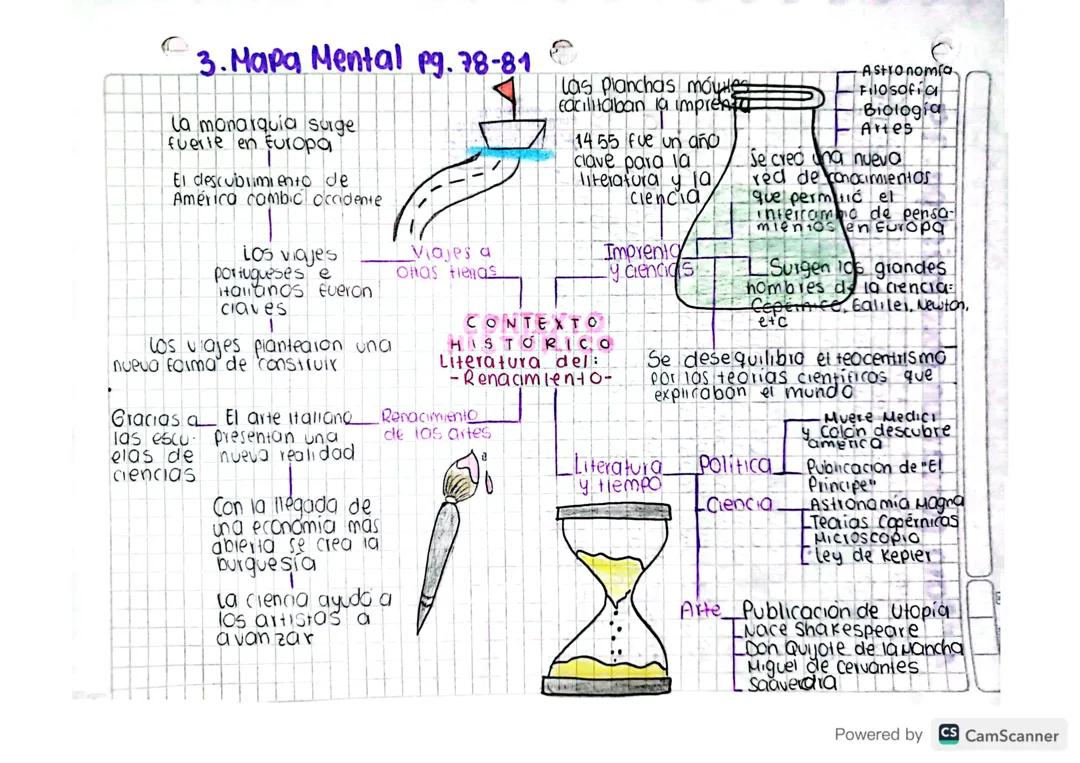 3. Mapa Mental pg. 78-81
La monarquía surge
fuerte en Europa
El descubrimiento de
América cambió occidente
Los viajes
portugueses e
italianos fueron
claves
Los viajes plantearon una
nueva forma de construir
Viajes a
otras tierras
Las planchas móviles
facilitaban la imprenta
1455 fue un año
clave para la
literatura y la
ciencia
Imprenta
y ciencias
Astronomía
Filosofía
Biología
Artes
Se creó una nueva
red de conocimientos
que permitió el
intercambio de pensa-
mientos en Europa
Surgen los grandes
nombres de la ciencia:
Copérnico, Galilei, Newton,
etc
Se desequilibrio el teocentrismo
por las teorías científicas que
explicaban el mundo
CONTEXTO
HISTÓRICO
Literatura del:
-Renacimiento-
Renacimiento
de las artes
El arte italiano
presentan una
nueva realidad
Gracias a
las escu-
elas de
ciencias
Con la llegada de
una economía mas
abierta se crea la
burguesía
La ciencia ayudó a
los artistas a
avanzar
Literatura
y tiempo
Política
Muere Medici
y Colón descubre
américa
Publicación de "El
Príncipe"
Ciencia
Astronomía Magna
Teorías Copérnicas
Microscopio
Ley de Kepler
Arte
Publicación de Utopía
Nace Shakespeare
Don Quijote de la Mancha
Miguel de Cervantes
Saavedra
Powered by CS CamScanner